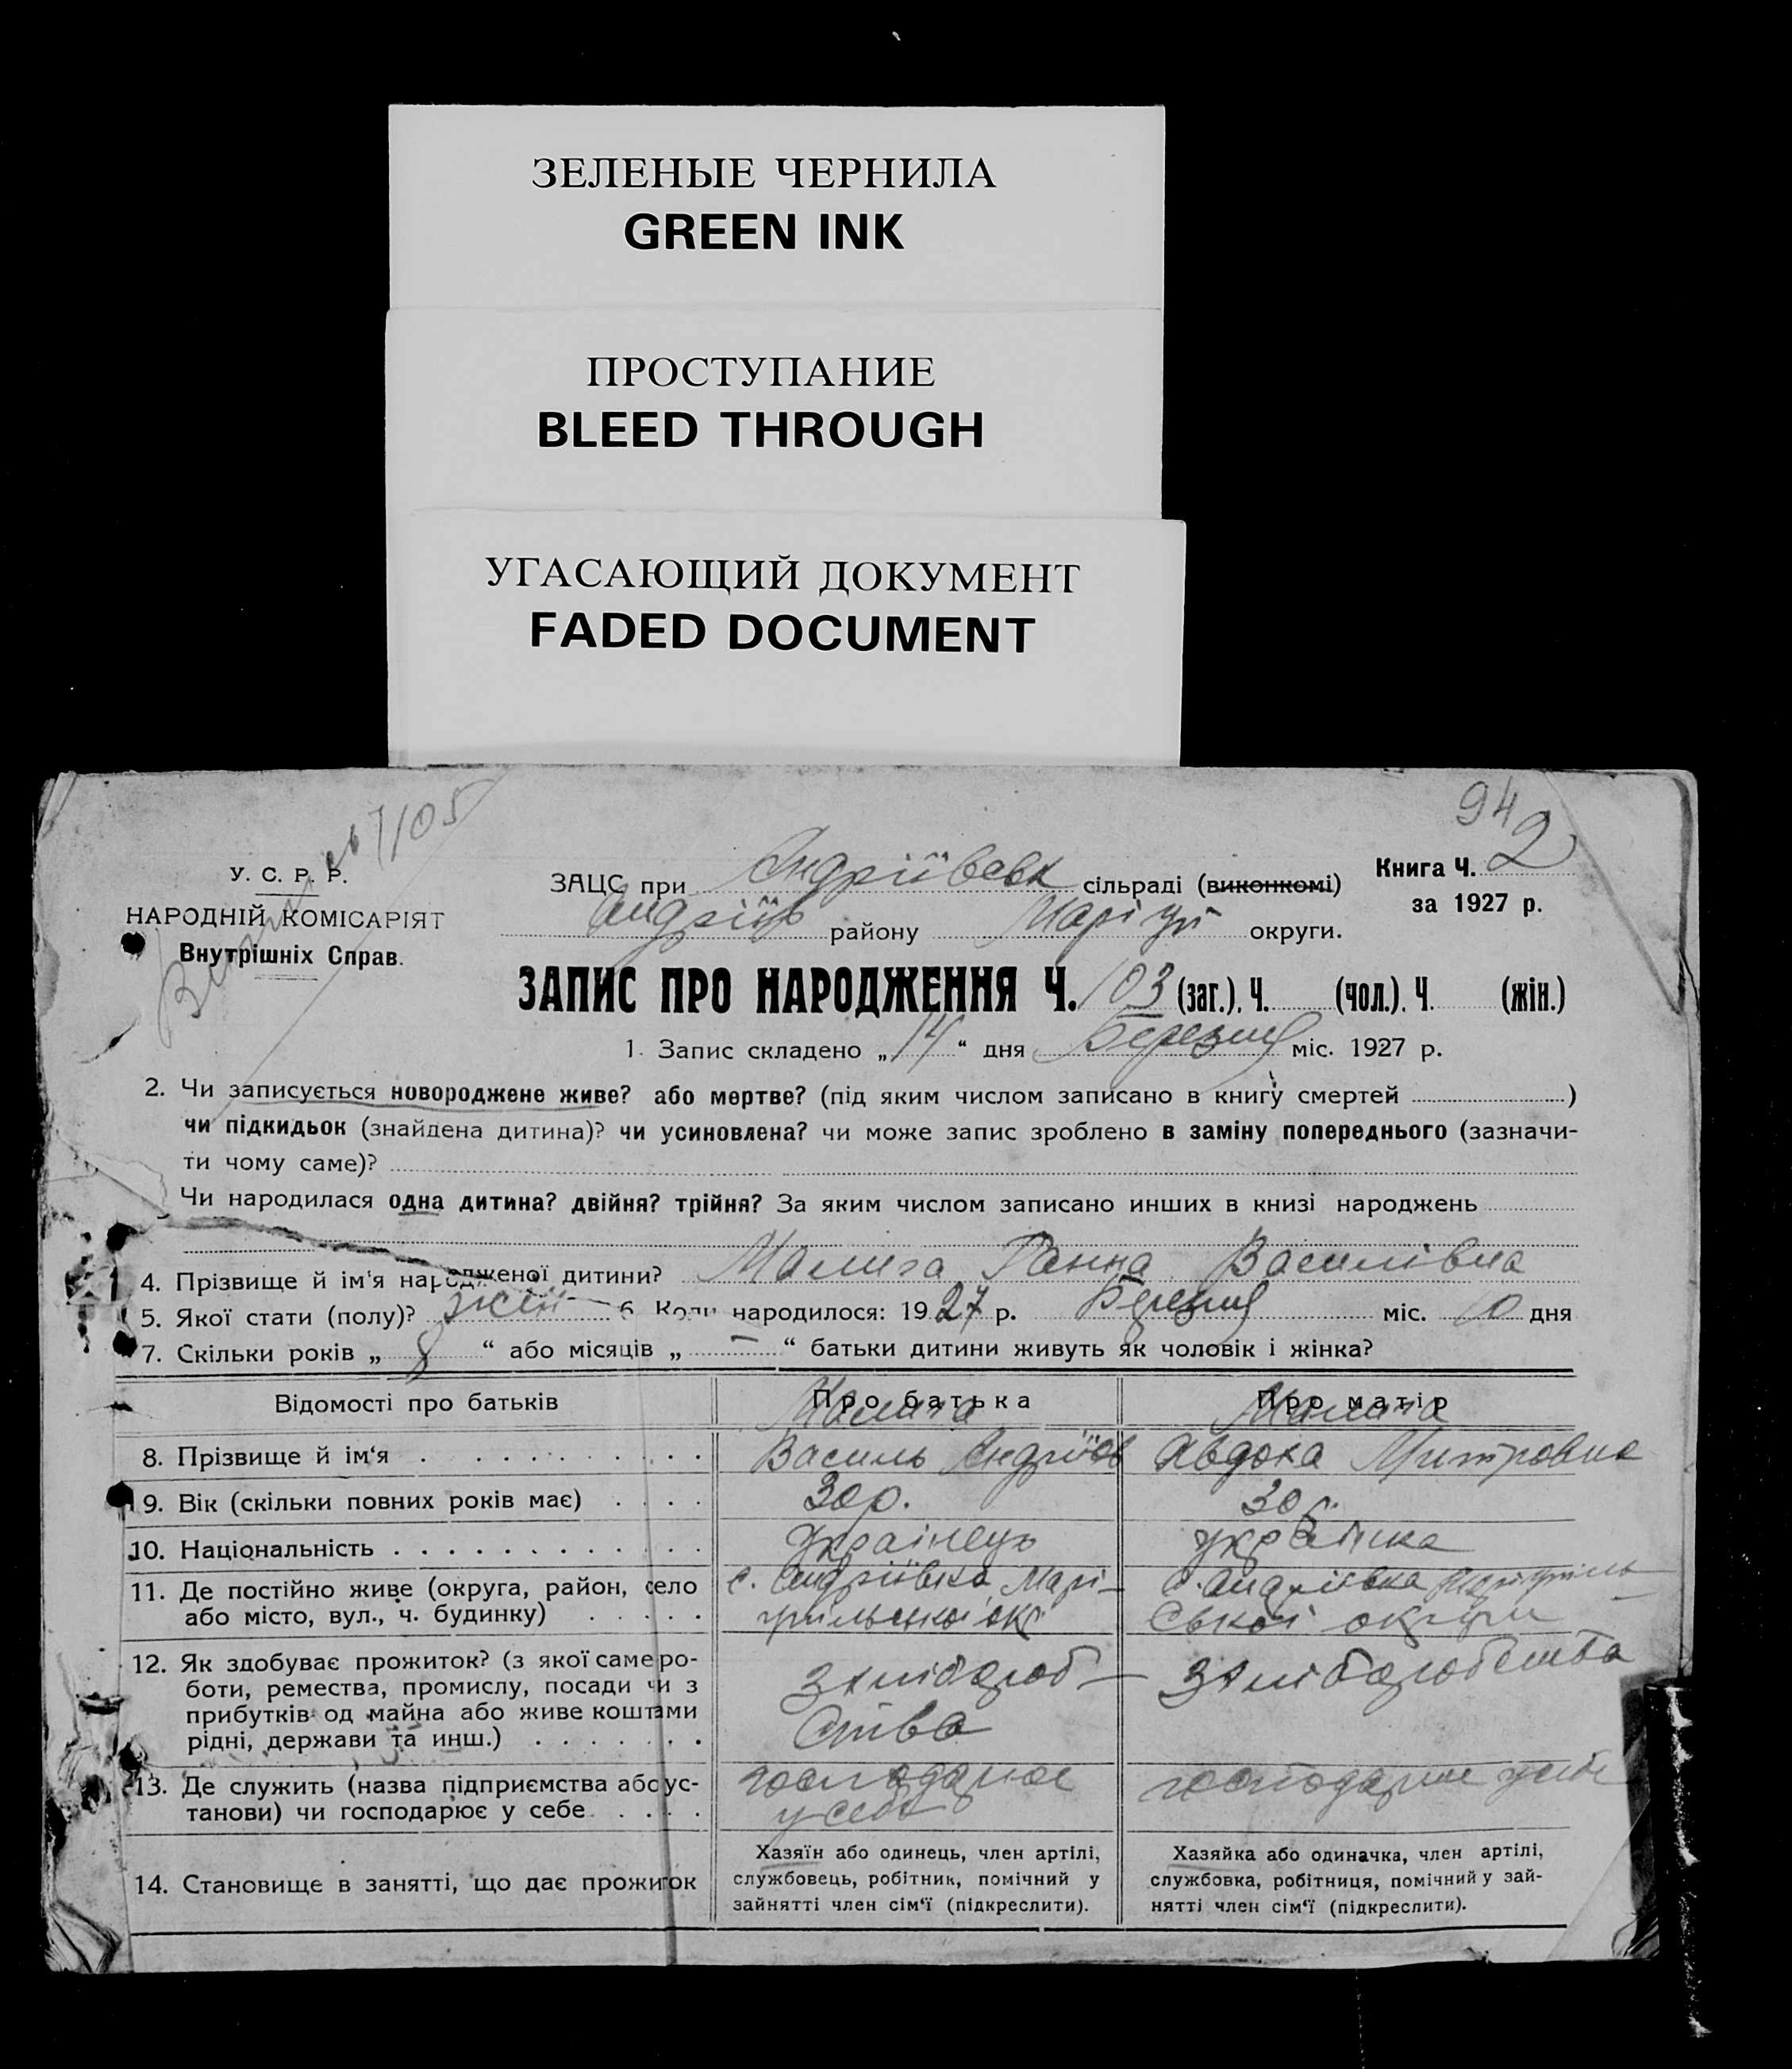 ЗЕЛЕНЫЕ ЧЕРНИЛА
GREEN INK
ПРОСТУПАНИЕ
BLEED THROUGH
УГАСАЮЩИЙ ДОКУМЕНТ
FADED DOCUMENT
94
№ 7105
У. С. Р. Р.
НАРОДНІЙ КОМІСАРІЯТ
Внутрішніх Справ.
Книга Ч. 2
за 1927 р.
ЗАЦС при Андріївськ сільраді (виконкомі)
Андріїв району Маріуп округи.
ЗАПИС ПРО НАРОДЖЕННЯ Ч. 103 (заг.), Ч. (чол.), Ч. (жін.)
1. Запис складено „14“ дня Березня міс. 1927 р.
2. Чи записується новороджене живе? або мертве? (під яким числом записано в книгу смертей )
чи підкидьок (знайдена дитина)? чи усиновлена? чи може запис зроблено в заміну попереднього (зазначи-
ти чому саме)?
Чи народилася одна дитина? двійня? трійня? За яким числом записано инших в книзі народжень
4. Прізвище й ім'я народженої дитини? Малига Ганна Василівна
5. Якої стати (полу)? жін 6. Коли народилося: 1927 р. Березня міс. 10 дня
7. Скільки років „ 8 “ або місяців „ — “ батьки дитини живуть як чоловік і жінка?
Відомості про батьків Про батька Про матір
Малига Малига
8. Прізвище й ім'я Василь Андріїв Авдокa Митровна
9. Вік (скільки повних років має) 30 р. 30 р.
10. Національність Українець українка
11. Де постійно живе (округа, район, село
або місто, вул., ч. будинку)
с. Андріївка Марі-
упільської окр
с. Андріївка Маріупіль-
ської округи
12. Як здобуває прожиток? (з якої саме ро-
боти, ремества, промислу, посади чи з
прибутків од майна або живе коштами
рідні, держави та инш.)
з хлібороб-
ства
з хліборобства
13. Де служить (назва підприємства або ус-
танови) чи господарює у себе
господарює
у себе
господарює у себе
14. Становище в занятті, що дає прожиток
Хазяїн або одинець, член артілі,
службовець, робітник, помічний у
зайнятті член сім'ї (підкреслити).
Хазяйка або одиначка, член артілі,
службовка, робітниця, помічний у зай-
нятті член сім'ї (підкреслити).